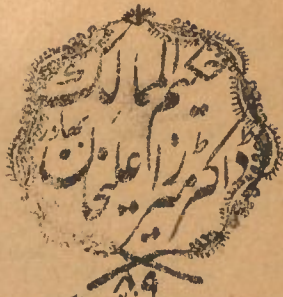 حکیم الممالک
ڈاکٹر میرزا علیخان بہادر
۸۹